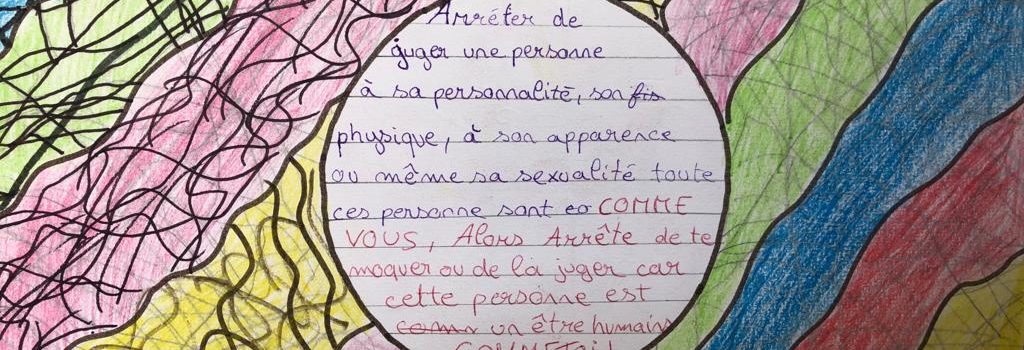 Arrêter de
juger une personne
à sa personnalité, son fis
physique, à son apparence
ou même sa sexualité toute
ces personne sont co COMME
VOUS, Alors Arrête de te
moquer ou de la juger car
cette personne est
comm un être humains
COMME TOI!